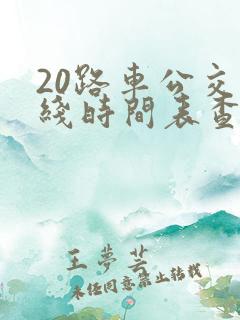 20路車公交
綫時間表查
王夢芸
未任同意禁止轉載